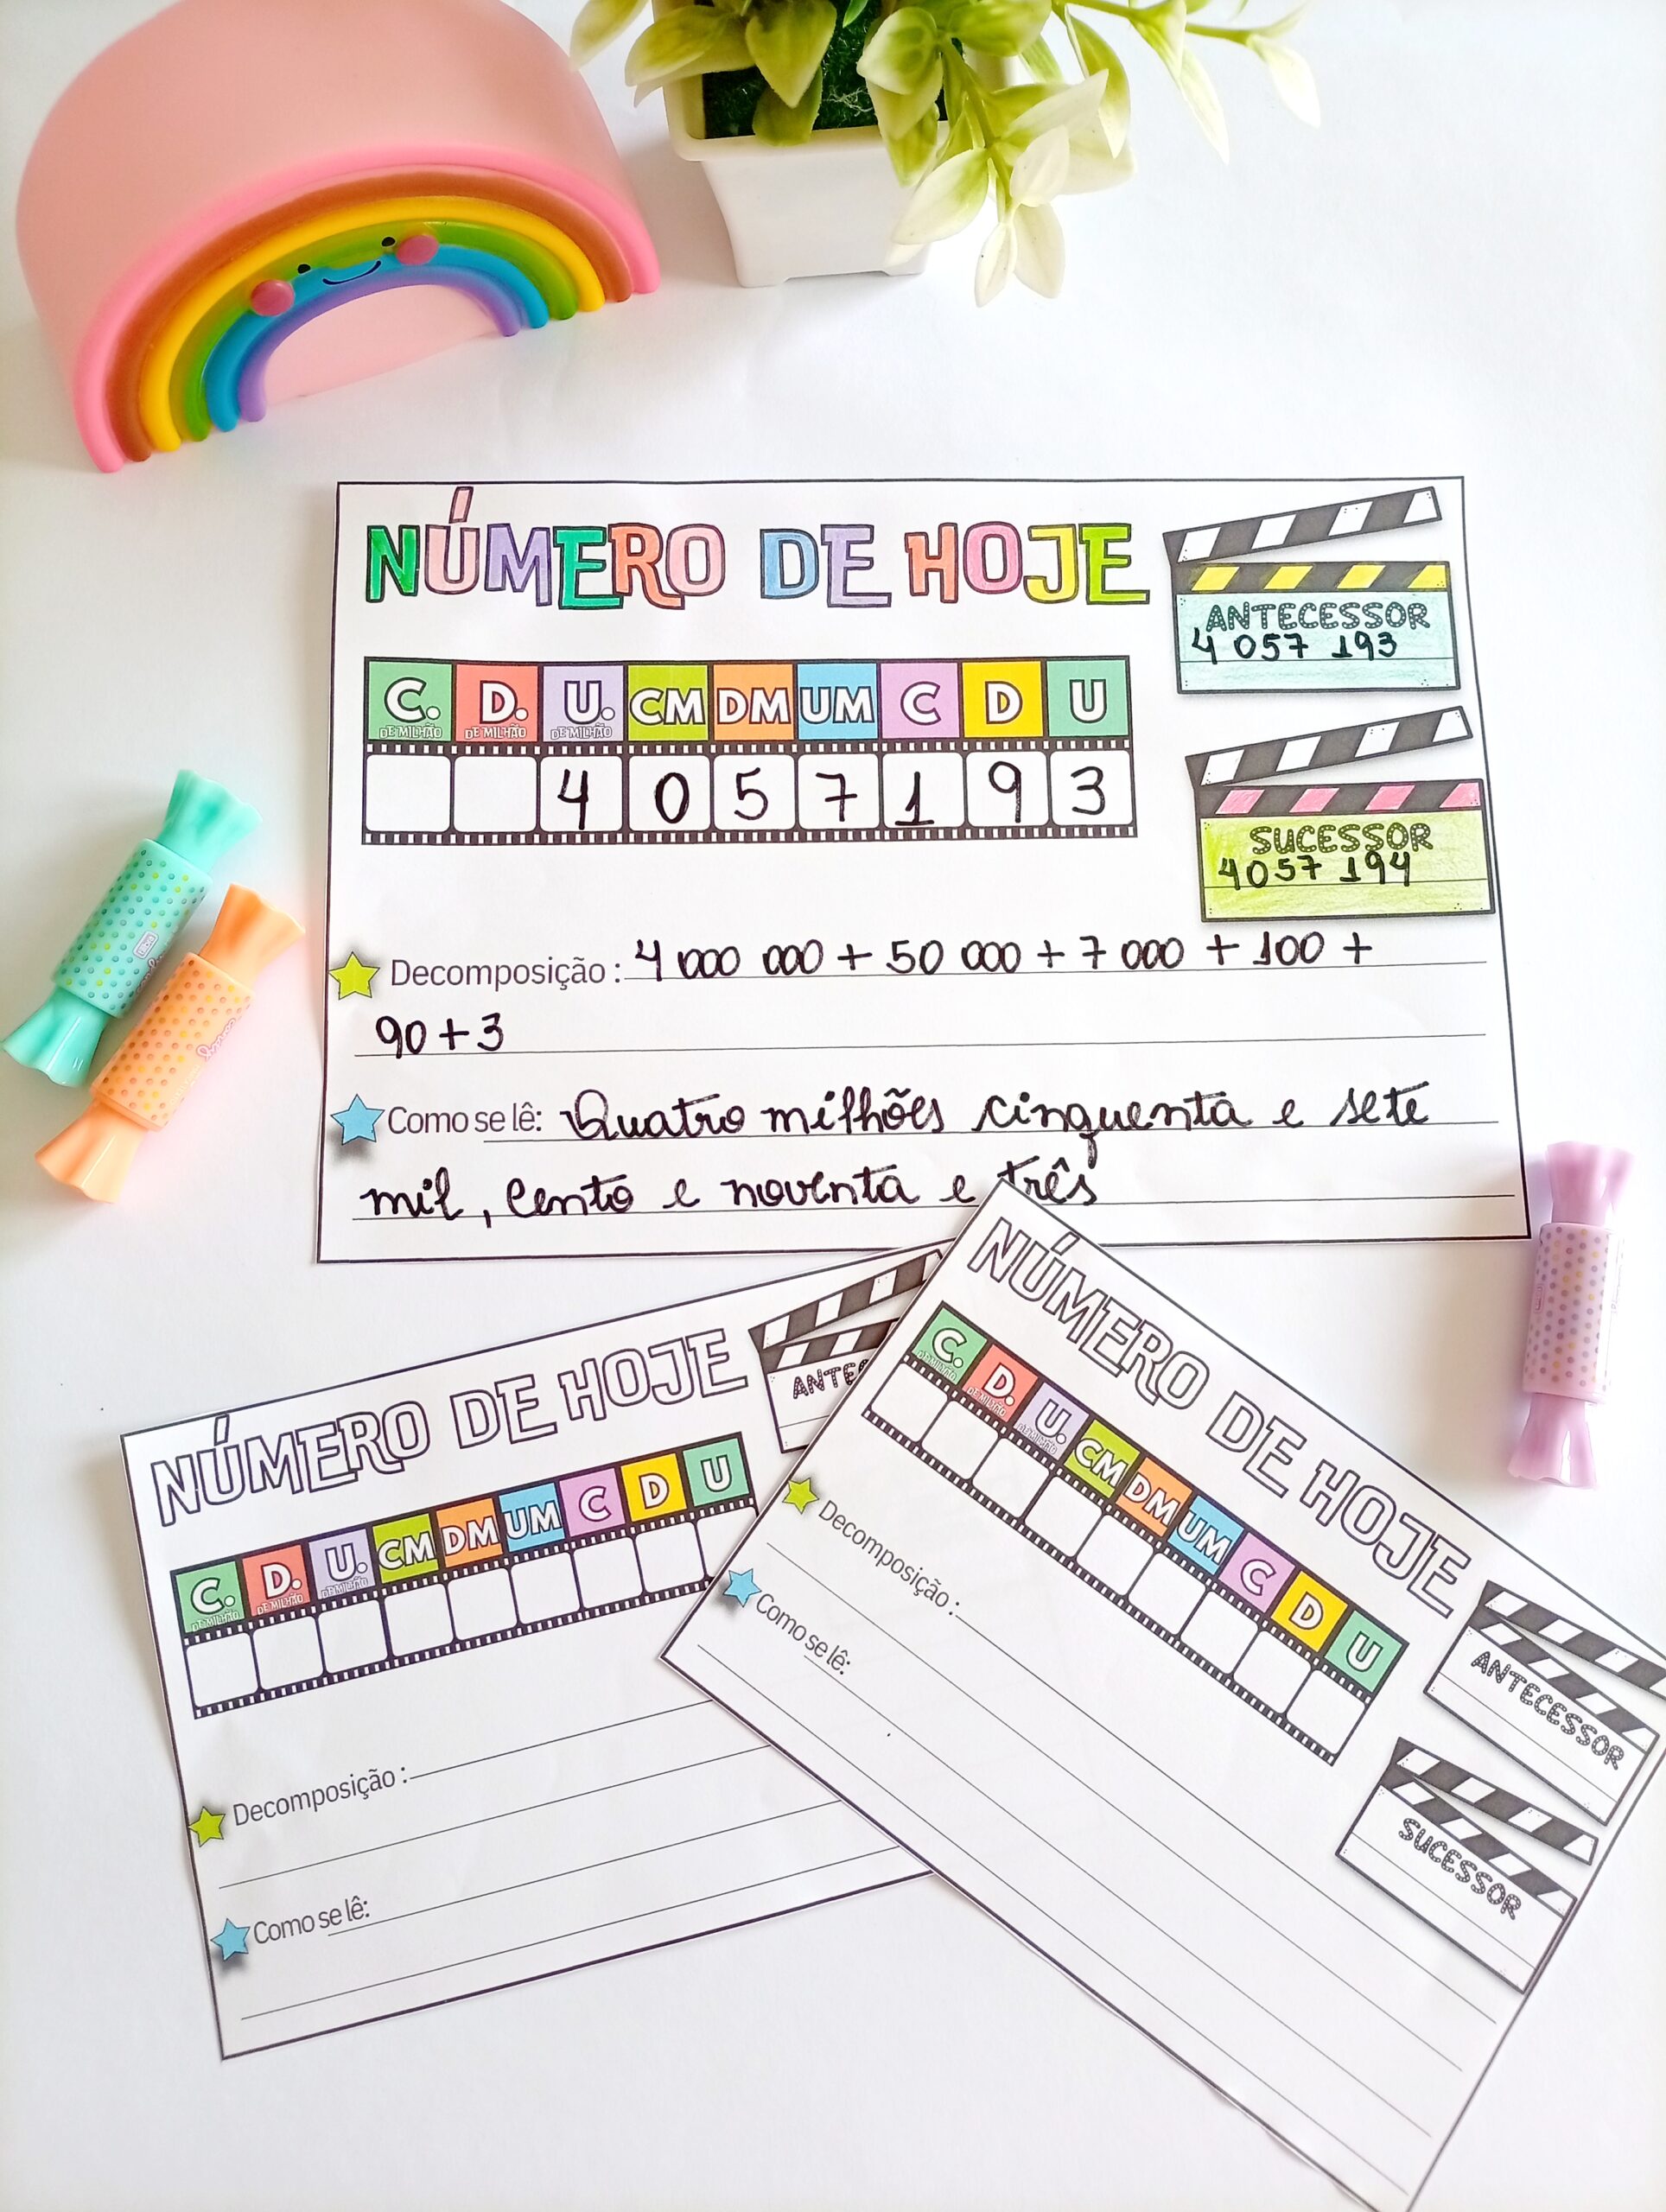 NÚMERO DE HOJE
ANTECESSOR
4 057 193
C. D. U. CM DM UM C D U
DE MILHÃO DE MILHÃO DE MILHÃO
4 0 5 7 1 9 3
SUCESSOR
4057 194
Decomposição : 4 000 000 + 50 000 + 7 000 + 100 +
90 + 3
Como se lê: Quatro milhões cinquenta e sete
mil, cento e noventa e três
NÚMERO DE HOJE
ANTE
C. D. U. CM DM UM C D U
DE MILHÃO DE MILHÃO DE MILHÃO
Decomposição :
Como se lê:
NÚMERO DE HOJE
C. D. U. CM DM UM C D U
DE MILHÃO DE MILHÃO DE MILHÃO
ANTECESSOR
SUCESSOR
Decomposição :
Como se lê: